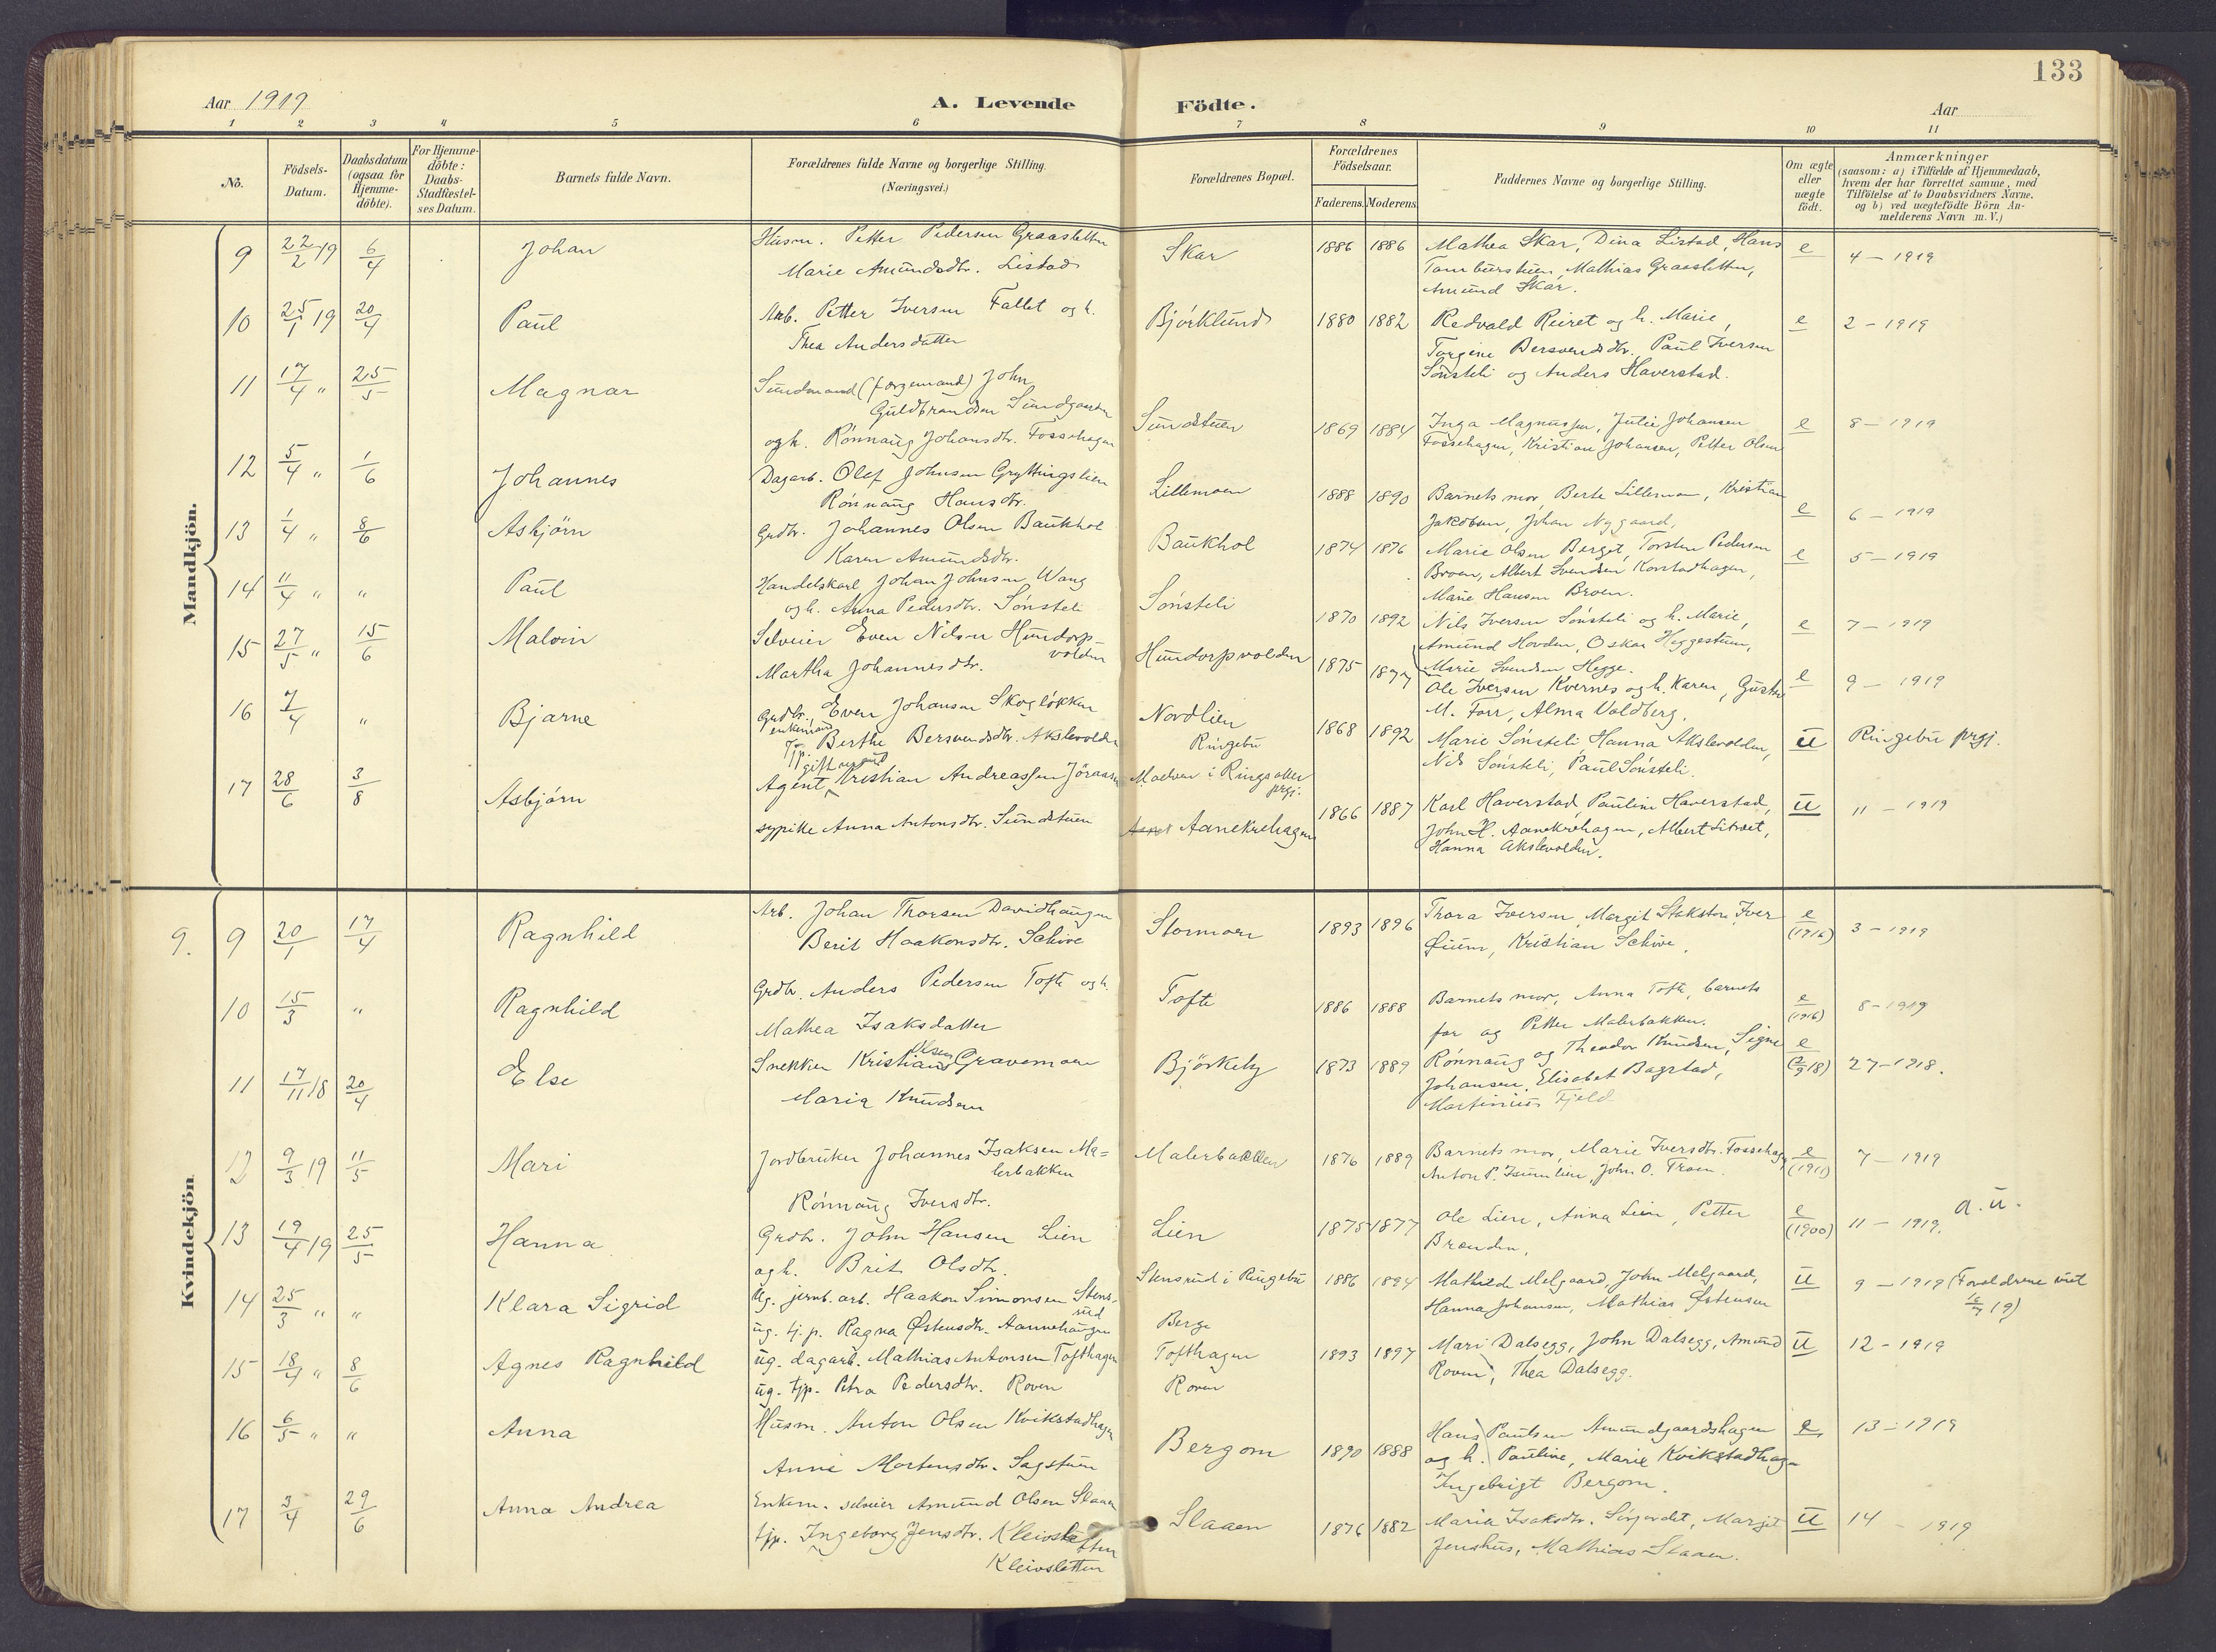 133
Aar 1919 A. Levende Födte. Aar
1 2 3 4 5 6 7 8 9 10 11
No.
Födsels-Datum.
Daabsdatum (ogsaa for Hjemme-döbte).
For Hjemme-döbte: Daabs-Stadfæstel-ses Datum.
Barnets fulde Navn.
Forældrenes fulde Navne og borgerlige Stilling. (Næringsvei.)
Forældrenes Bopæl.
Forældrenes Födselsaar.
Faderens. Moderens.
Faddernes Navne og borgerlige Stilling.
Om ægte eller uægte födt.
Anmærkninger
(saasom: a) i Tilfælde af Hjemmedaab,
hvem der har forrettet samme, med
Tilföielse af to Daabsvidners Navne.
og b) ved uægtefödte Börn An-
melderens Navn m. V.)
Mandkjön.
9 22/2 19 6/4 Johan Husm. Petter Pedersen Graasletten
Marie Amundsdtr. Listad
Skar 1886 1886 Mathea Skar, Dina Listad, Hans
Mathias Graasletten,
Amund Skar.
e 4 – 1919
10 25/1 19 20/4 Paul Arb. Petter Iversen Fallet og h.
Thea Andersdatter
Björklund 1880 1882 Redvald Reiret og h. Marie,
Torgine Bersvendsdtr. Paul Iversen
Sönsteli og Anders Haverstad.
e 2 – 1919
11 17/4 " 25/5 Magnar Sundmand (færgemand) John
Guldbrandsen Sundgaarden
og h. Rönnaug Johansdtr. Fossehagen
Sundstuen 1869 1884 Inga Magnussen, Julie Johansen
Fossehagen, Kristian Johansen, Petter Olsen
e 8 – 1919
12 5/4 " 1/6 Johannes Dagarb. Olef Johnsen Gryttingslien
Rönnaug Hansdtr.
Lillemoen 1888 1890 Barnets mor, Berte Lillemoen, Kristian
Jakobsen, Johan Nygaard,
e 6 – 1919
13 1/4 " 8/6 Asbjörn Grdbr. Johannes Olsen Baukhol
Karen Amundsdtr.
Baukhol 1874 1876 Marie Olsen Berget, Torsten Pedersen
Broen, Albert Svendsen Korstadhagen,
Marie Hansen Broen.
e 5 – 1919
14 11/4 " " Paul Handelskarl Johan Johnsen Wang
og h. Anna Pedersdtr. Sönsteli
Sönsteli 1870 1892 Nils Iversen Sönsteli og h. Marie,
Amund Hovden, Oskar Heggestuen,
Marie Svendsen Hegge.
e 7 – 1919
15 27/5 " 15/6 Malvin Selveier Even Nilsen Hundorp-
volden
Martha Johannesdtr.
Hundorpvolden 1875 1877 Ole Iversen Kvernes og h. Karen, Gustav
M. Forr, Alma Voldberg.
e 9 – 1919
16 7/4 " Bjarne Grdbr., enkemand Even Johansen Skoglökken
Tjp. Berthe Bersvendsdtr. Akslevolden
Nordlien
Ringebu
1868 1892 Marie Sönsteli, Hanna Akslevolden,
Nils Sönsteli, Paul Sönsteli.
u Ringebu prgj.
17 28/6 3/8 Asbjörn Agent, gift mand Kristian Andreassen Joraasen
sypike Anna Antonsdtr. Sundstuen
Moelven i Ringsaker
prgj.
Aanekrehagen
1866 1887 Karl Haverstad, Pauline Haverstad,
John H. Aanekrehagen, Albert Sitræet,
Hanna Akslevolden.
u 11 – 1919
Kvindekjön.
9. 9 20/1 17/4 Ragnhild Arb. Johan Thorsen Davidhaugen
Berit Haakonsdtr. Schive
Stormoen 1893 1896 Thora Iversen, Margit Stakston, Iver
Öium, Kristian Schive,
e (1916) 3 – 1919
10 15/3 " Ragnhild Grdbr. Anders Pedersen Tofte og h.
Mathea Isaksdatter
Tofte 1886 1888 Barnets mor, Anna Tofte, barnets
far og Petter Malerbakken.
e (1916) 8 – 1919
11 17/11 18 20/4 Else Snekker Kristian Olsen Gravemoen
Maria Knudsen
Björkely 1873 1889 Rönnaug og Theodor Knudsen, Signe
Johansen, Elisabet Bagstad,
Martinius Fjeld
e 27 – 1918.
12 9/3 19 11/5 Mari Jordbruker Johannes Isaksen Ma=
lerbakken
Rönnaug Iversdtr.
Malerbakken 1876 1889 Barnets mor, Marie Iversdtr. Fossehagen
John O. Troen.
e (1911) 7 – 1919
13 19/4 19 25/5 Hanna Grdbr. John Hansen Lien
og h. Brit Olsdtr.
Lien 1875 1877 Ole Lien, Anna Lien, Petter
Brænden,
e (1900) 11 – 1919. a. u.
14 25/3 " " Klara Sigrid Ug. jernb. arb. Haakon Simonsen Stens-
rud
ug. tj. p. Ragna Östensdtr. Aannehaugen
Stensrud i Ringebu
Berge
1886 1894 Mathilde Melgaard, John Melgaard,
Hanna Johansen, Mathias Östensen
u 9 – 1919 (Foreldrene viet
19)
15 18/4 " 8/6 Agnes Ragnhild Ug. dagarb. Mathias Antonsen Tofthagen
ug. tjp. Petra Pedersdtr. Roven
Tofthagen
Roven
1893 1897 Mari Dalsegg, John Dalsegg, Amund
Roven, Thea Dalsegg.
u 12 – 1919
16 6/5 " " Anna Husm. Anton Olsen Kvikstadhagen
Anne Mortensdtr. Sagstuen
Bergom 1890 1888 Hans Paulsen Amundgaardshagen
og h. Pauline, Marie Kvikstadhagen
Ingebrigt Bergom.
e 13 – 1919
17 3/4 29/6 Anna Andrea Enkem. selveier Amund Olsen Slaaen
tjp. Ingeborg Jensdtr. Kleivsletten
Kleivsletten
Slaaen 1876 1882 Maria Isaksdtr. Sörjordet, Margit
Jenshus, Mathias Slaaen.
u 14 – 1919